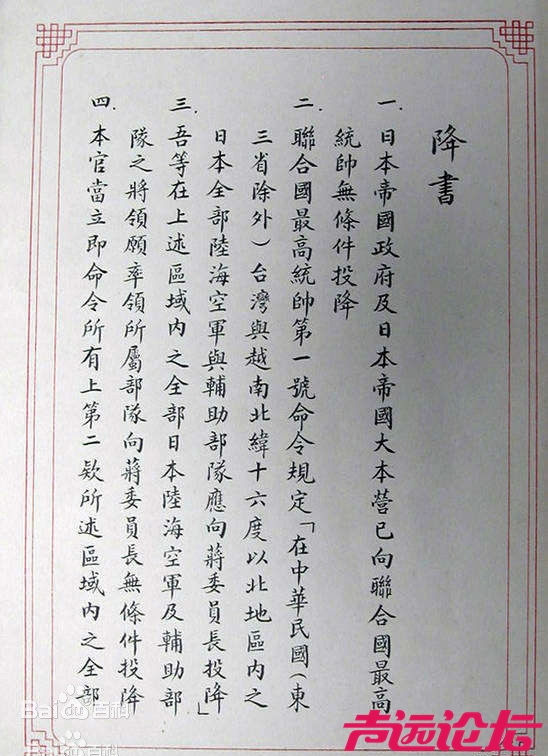 降書
一.日本帝國政府及日本帝國大本營已向聯合國最高
統帥無條件投降
二.聯合國最高統帥第一號命令規定「在中華民國(東
三省除外)台灣與越南北緯十六度以北地區內之
日本全部陸海空軍與輔助部隊應向蔣委員長投降」
三.吾等在上述區域內之全部日本陸海空軍及輔助部
隊之將領願率領所屬部隊向蔣委員長無條件投降
四.本官當立即命令所有上第二欵所述區域內之全部
Bai百科
声远论坛